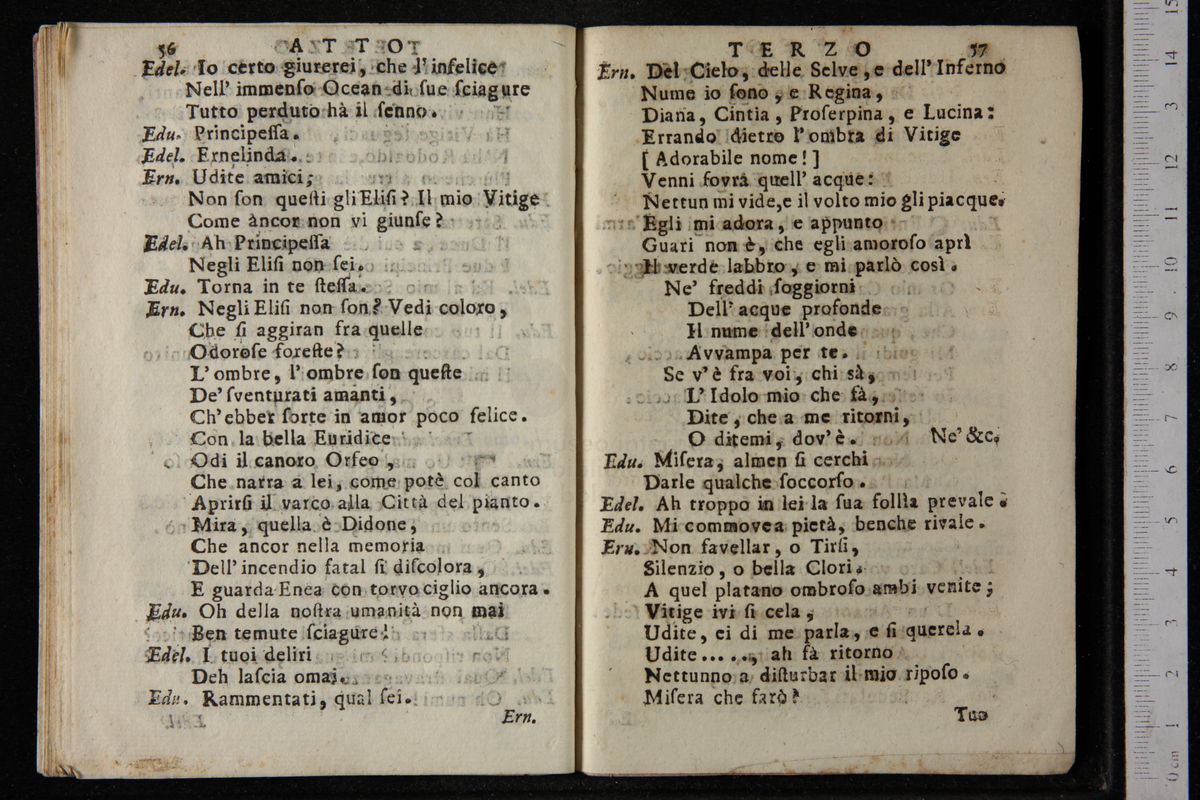 56 ATTO
Edel. Io certo giurerei, che l'infelice
Nell' immenſo Ocean di ſue ſciagure
Tutto perduto hà il ſenno.
Edu. Principeſſa.
Edel. Ernelinda.
Ern. Udite amici;
Non ſon queſti gli Eliſi? Il mio Vitige
Come àncor non vi giunſe?
Edel. Ah Principeſſa
Negli Eliſi non ſei.
Edu. Torna in te ſteſſa.
Ern. Negli Eliſi non ſon? Vedi coloro,
Che ſi aggiran fra quelle
Odoroſe foreſte?
L'ombre, l'ombre ſon queſte
De' ſventurati amanti,
Ch'ebber ſorte in amor poco felice.
Con la bella Euridice
Odi il canoro Orfeo,
Che narra a lei, come potè col canto
Aprirſi il varco alla Città del pianto.
Mira, quella è Didone,
Che ancor nella memoria
Dell'incendio fatal ſi diſcolora,
E guarda Enea con torvo ciglio ancora.
Edu. Oh della noſtra umanità non mai
Ben temute ſciagure!
Edel. I tuoi deliri
Deh laſcia omai.
Edu. Rammentati, qual ſei.
Ern.
TERZO 57
Ern. Del Cielo, delle Selve, e dell'Inferno
Nume io ſono, e Regina,
Diana, Cintia, Proſerpina, e Lucina:
Errando dietro l'ombra di Vitige
[Adorabile nome!]
Venni ſovra quell' acque:
Nettun mi vide, e il volto mio gli piacque.
Egli mi adora, e appunto
Guari non è, che egli amoroſo aprì
Il verde labbro, e mi parlò così.
Ne' freddi ſoggiorni
Dell' acque profonde
Il nume dell'onde
Avvampa per te.
Se v'è fra voi, chi sà,
L'Idolo mio che fà,
Dite, che a me ritorni,
O ditemi, dov'è. Ne' &c.
Edu. Miſera, almen ſi cerchi
Darle qualche ſoccorſo.
Edel. Ah troppo in lei la ſua follìa prevale.
Edu. Mi commove a pietà, benche rivale.
Ern. Non favellar, o Tirſi,
Silenzio, o bella Clori.
A quel platano ombroſo ambi venite;
Vitige ivi ſi cela,
Udite, ei di me parla, e ſi querela.
Udite....., ah fà ritorno
Nettunno a diſturbar il mio ripoſo.
Miſera che farò?
Tuo
0 cm 1 2 3 4 5 6 7 8 9 10 11 12 13 14 15